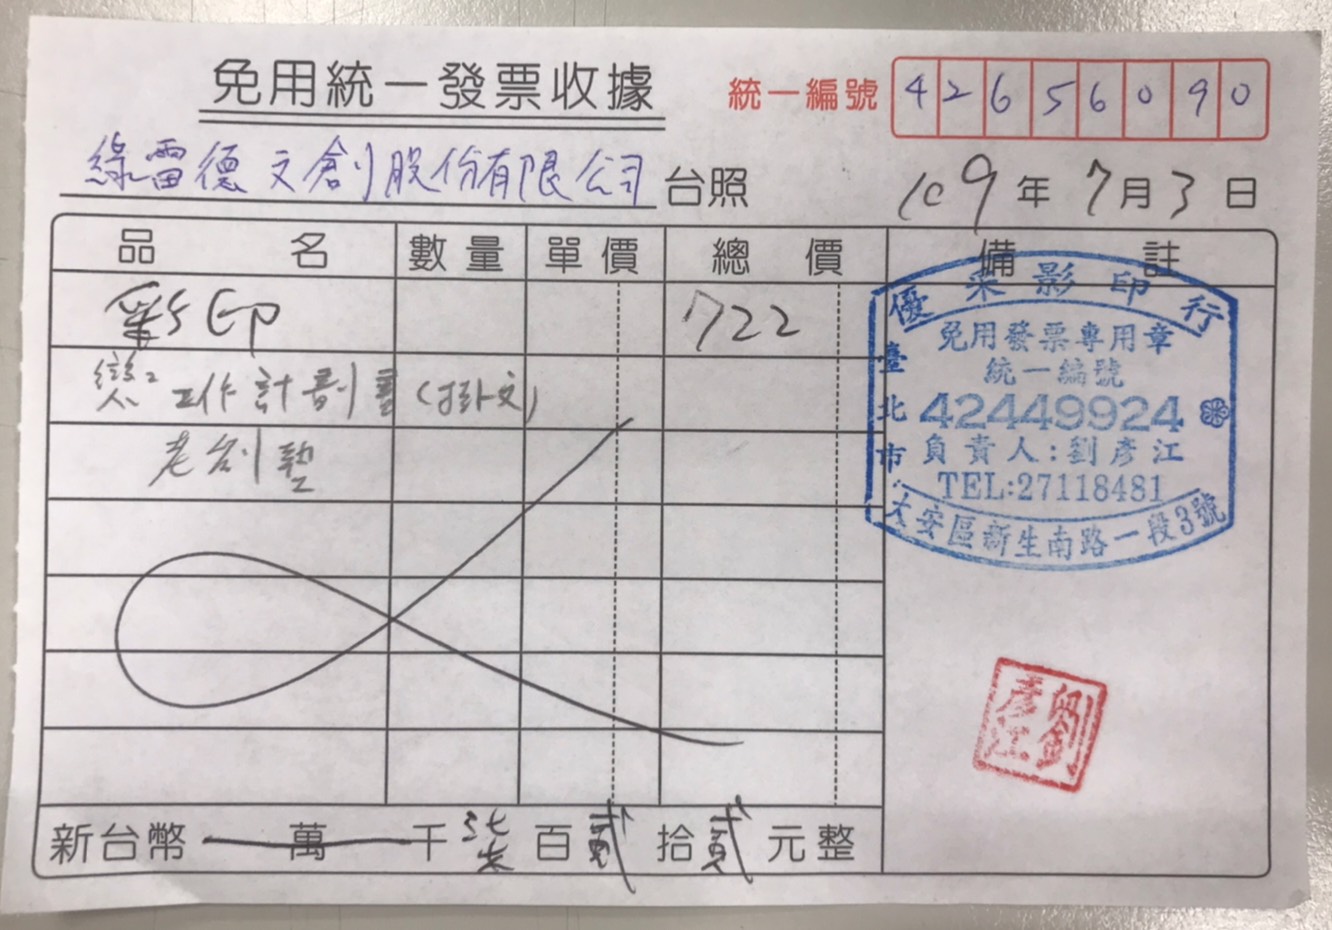 免用統一發票收據
統一編號 42656090
綠雷德文創股份有限公司 台照
109年7月3日
品名 數量 單價 總價 備註
彩印 722
工作計劃書(掛文)
老劍墊
優采影印行
免用發票專用章
統一編號
42449924
負責人:劉彥江
TEL:27118481
臺北市
大安區新生南路一段3號
劉彥江
新台幣 萬 千 柒 百 貳 拾 貳 元整